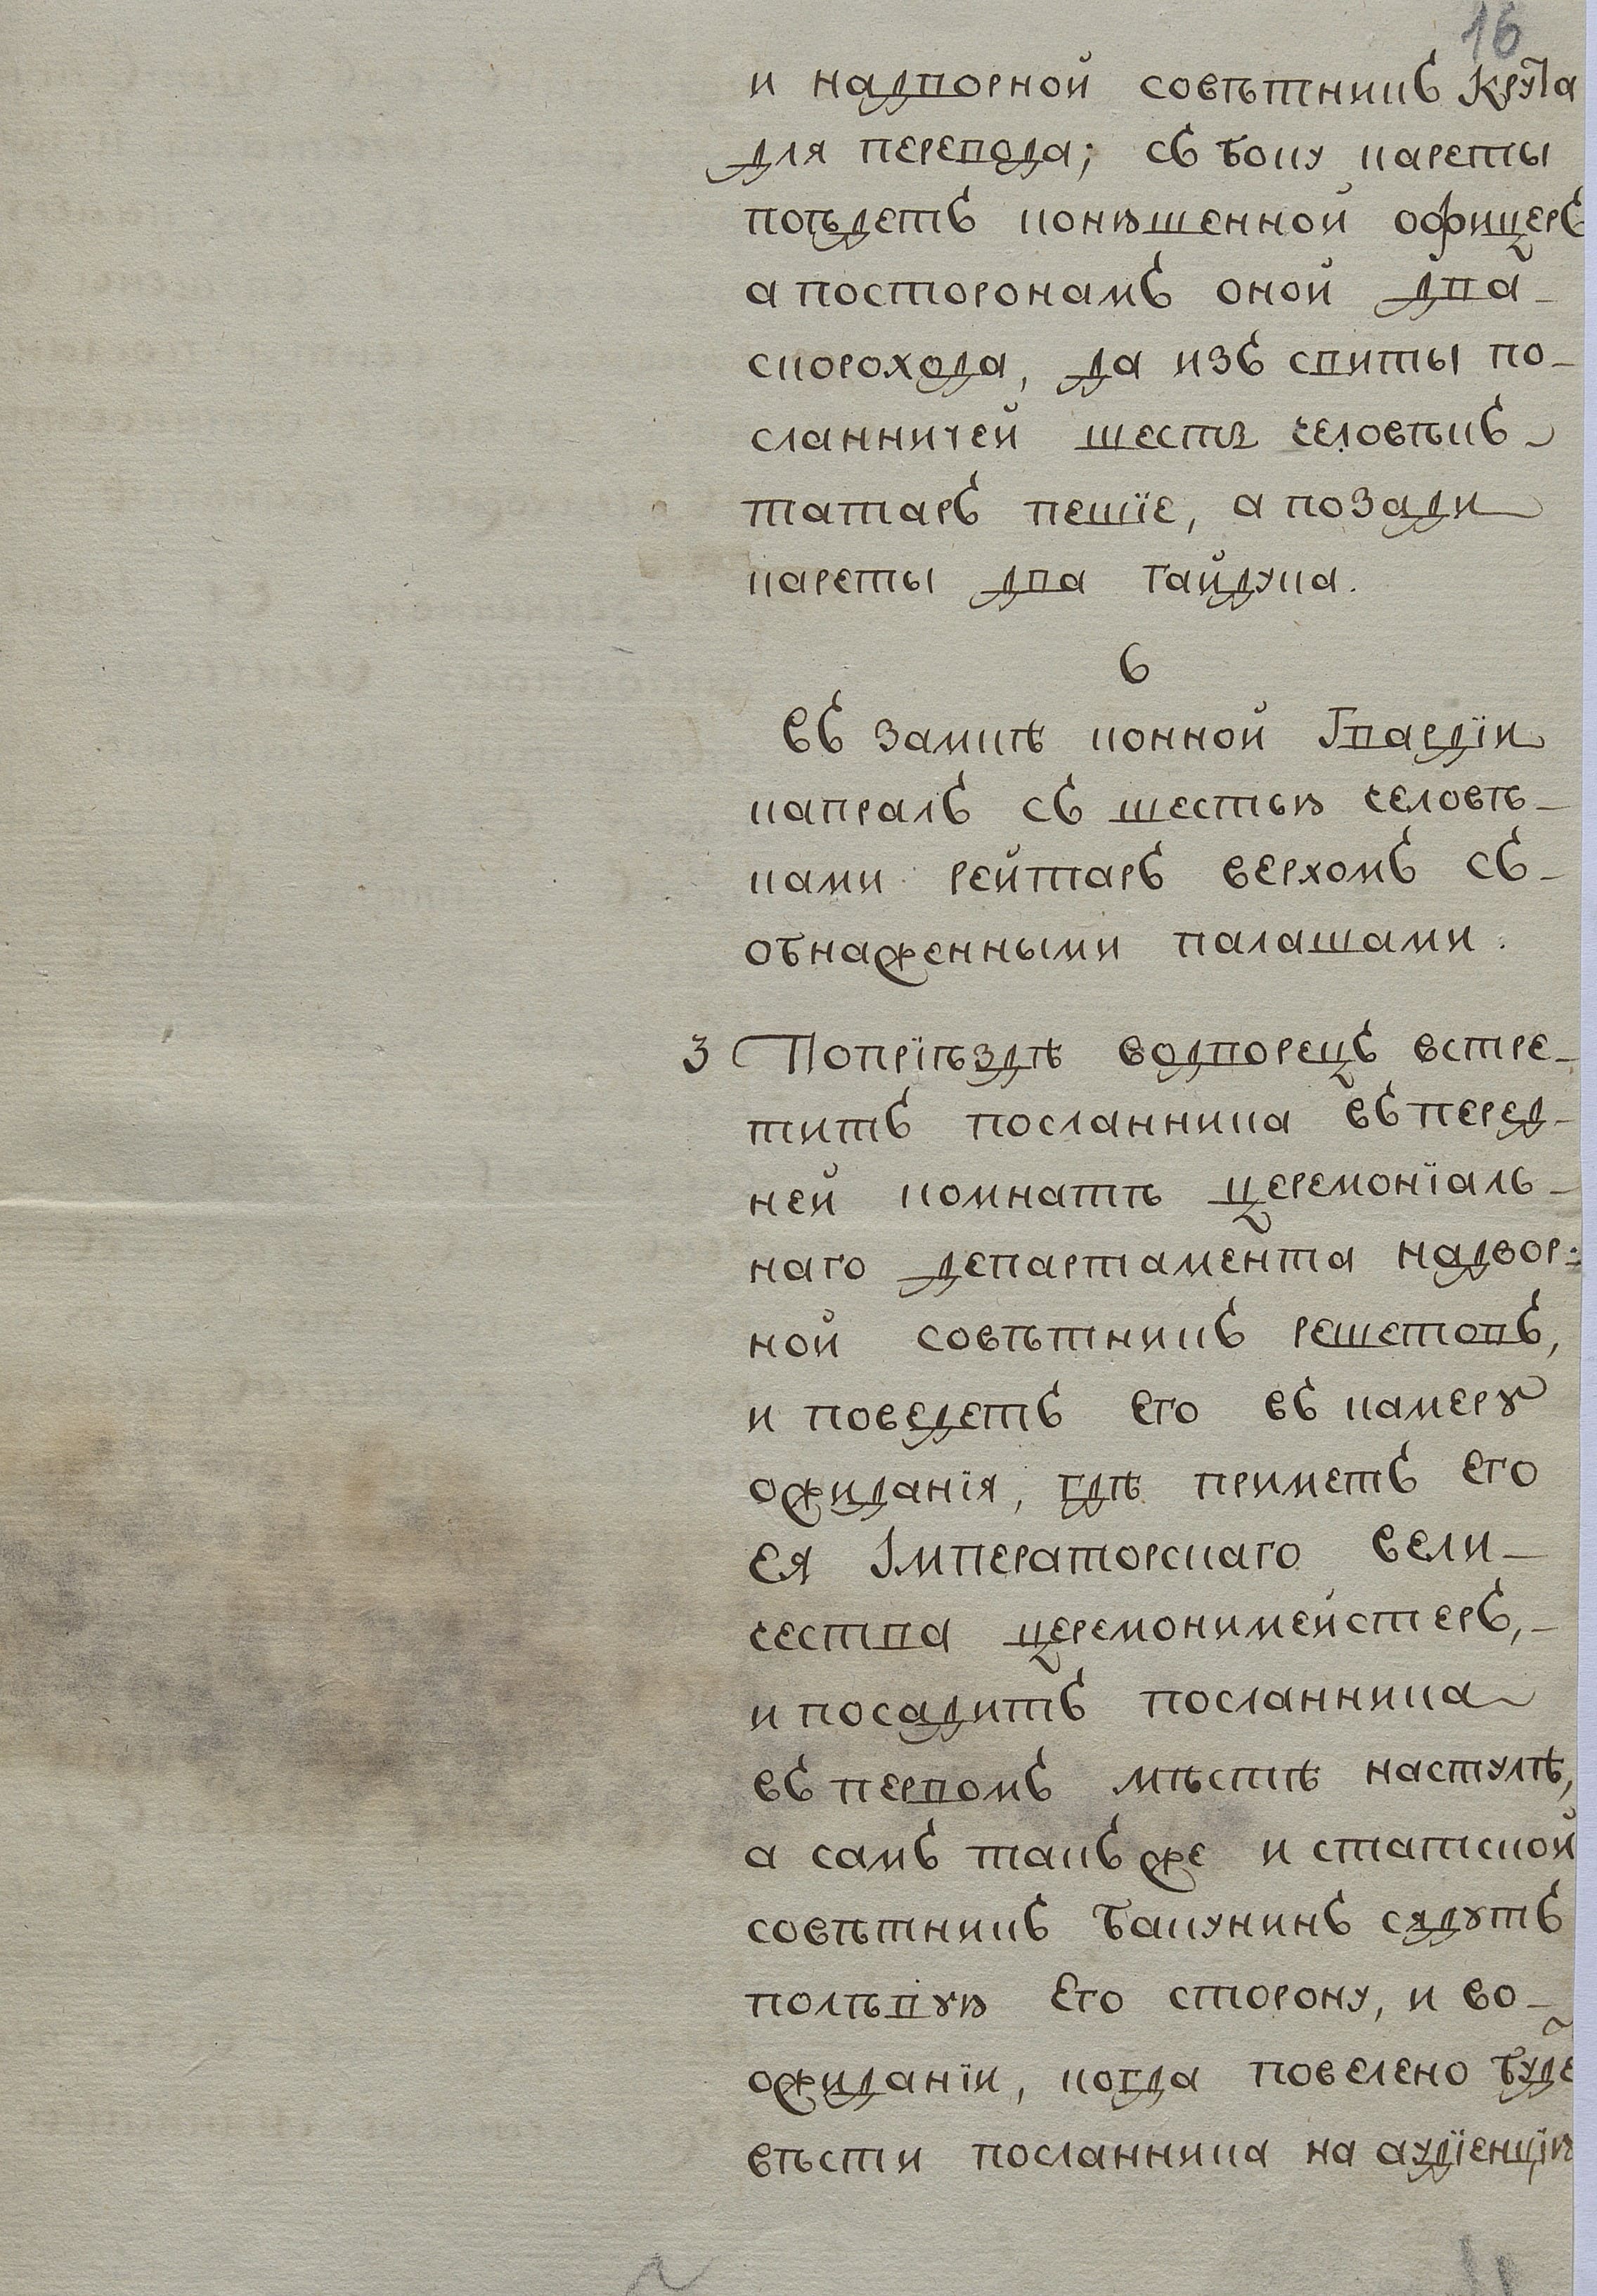 16
и надворной совѣтникъ Крута
для перевода; съ боку кареты
поѣдетъ конюшенной офицеръ
а посторонамъ оной два
скорохода, да изъ свиты по-
сланничей шесть человѣкъ
татаръ пешїе, а позади
кареты два гайдука.
6
Въ замкѣ конной Гвардїи
капралъ съ шестью человѣ-
ками рейтаръ верхомъ съ
обнаженными палашами.
3 Попрїѣздѣ водворецъ встре-
титъ посланника въ перед-
ней комнатѣ церемонїаль-
наго департамента надвор-
ной совѣтникъ решетовъ,
и поведетъ его въ камеру
ожиданїя, гдѣ приметъ его
Ея Императорскаго Вели-
чества церемонимейстеръ,
и посадитъ посланника
въ первомъ мѣстѣ настулѣ,
а самъ такъ же и статской
совѣтникъ Бакунинъ сядутъ
полѣвую Его сторону, и во-
ожиданїи, когда повелено буде
вѣсти посланника на аудїенцїю